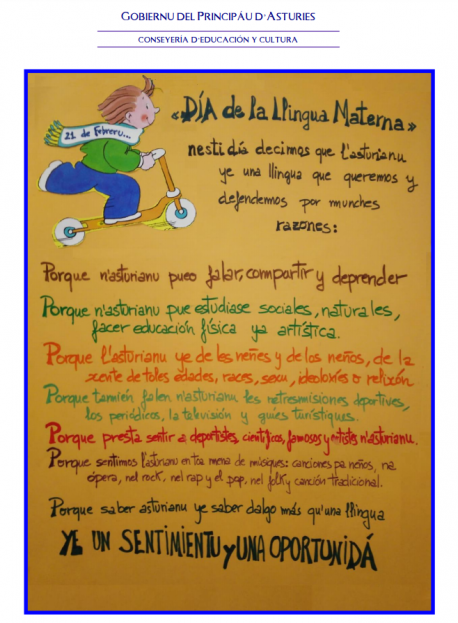 GOBIERNU DEL PRINCIPÁU D'ASTURIES
CONSEYERÍA D'EDUCACIÓN Y CULTURA
21 de Febreru...
«DÍA de la Llingua Materna»
nesti día decimos que l'asturianu
ye una llingua que queremos y
defendemos por munches
razones:
Porque n'asturianu pueo falar, compartir y deprender
Porque n'asturianu pue estudiase sociales, naturales,
facer educación física ya artística.
Porque l'asturianu ye de les neñes y de los neños, de la
xente de toles edades, races, sexu, ideoloxíes o relixón
Porque tamién falen n'asturianu les retresmisiones deportives,
los periódicos, la televisión y guíes turístiques.
Porque presta sentir a deportistes, científicos, famosos y artistes n'asturianu.
Porque sentimos l'asturianu en toa mena de músiques: canciones pa neños, na
ópera, nel rock, nel rap y el pop, nel folk y canción tradicional.
Porque saber asturianu ye saber dalgo más qu'una llingua
YE UN SENTIMIENTU y UNA OPORTUNIDÁ